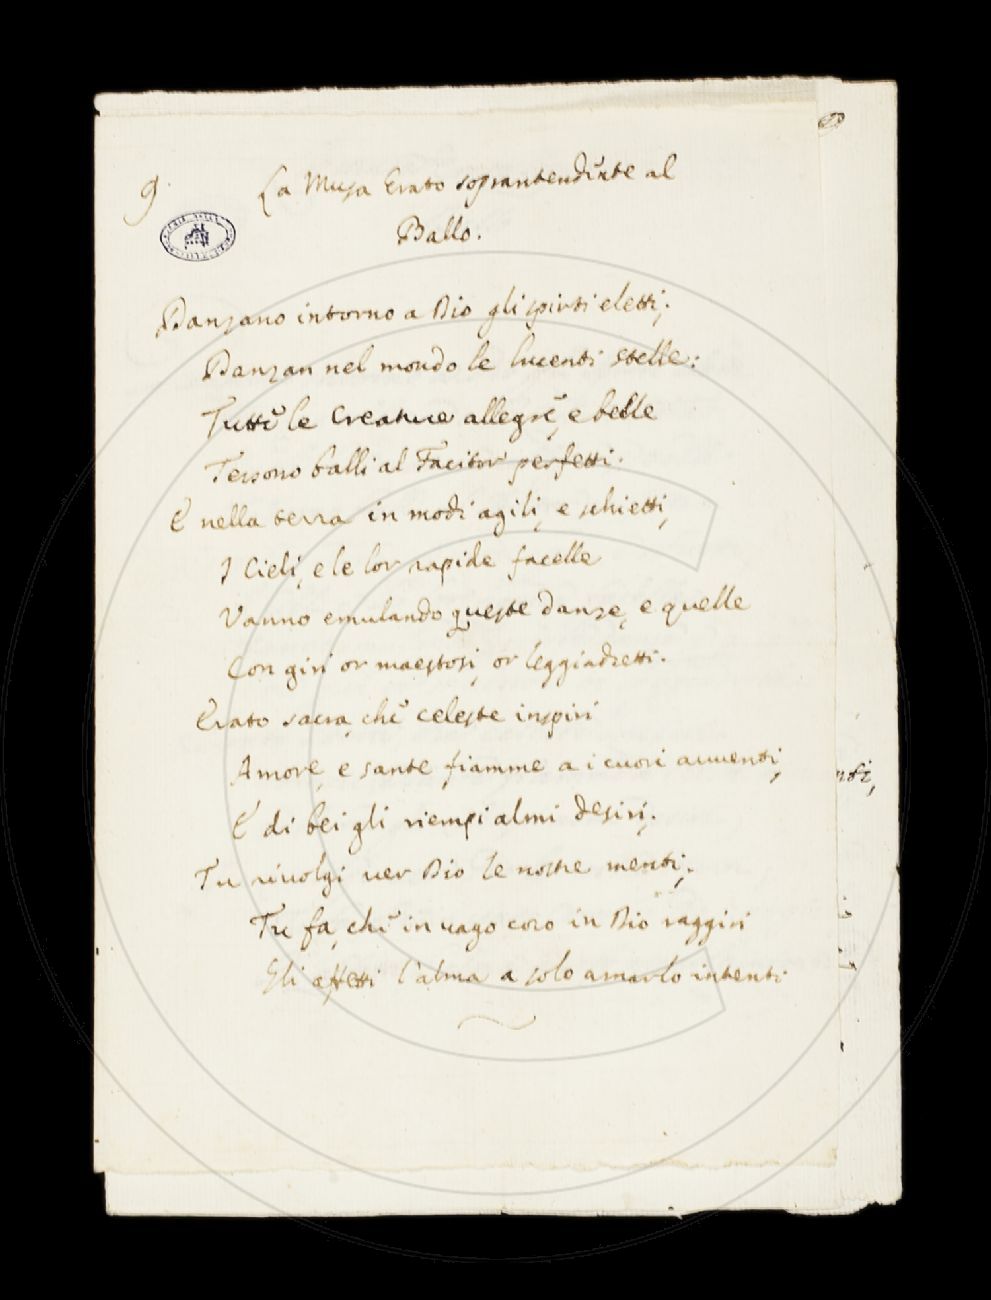 9.
La Musa Erato soprantendente al
Ballo.
Danzano intorno a Dio gli spirti eletti;
Danzan nel mondo le lucenti stelle:
Tutte le Creature allegre, e belle
Tessono balli al Facitor perfetti.
E nella terra in modi agili, e schietti,
I Cieli, e le lor rapide facelle
Vanno emulando queste danze, e quelle
Con giri or maestosi, or leggiadretti.
Erato sacra, che celeste inspiri
Amore, e sante fiamme a i cuori avventi,
E di bei gli riempi almi desiri;
Tu rivolgi ver Dio le nostre menti;
Tu fa, che in vago coro in Dio raggiri
Gli affetti l'alma a solo amarlo intenti
nti,